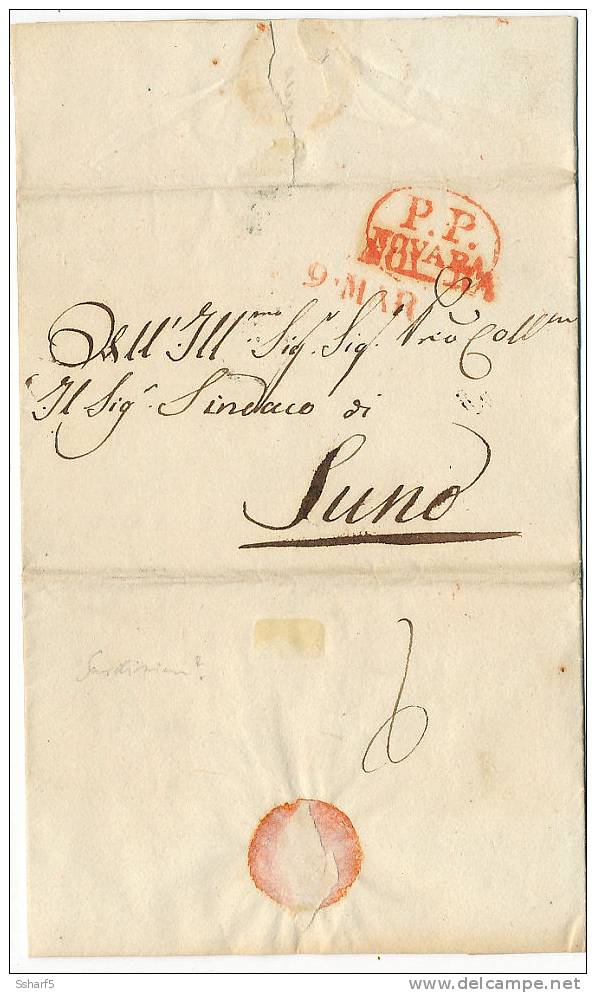 P. P.
NOVARA
9·MAR
Dell' Ill.mo Sig.r Sig.r
Il Sig.r Sindaco di
Suno
6
Sardinien?
Ssharf5
delcampe.net